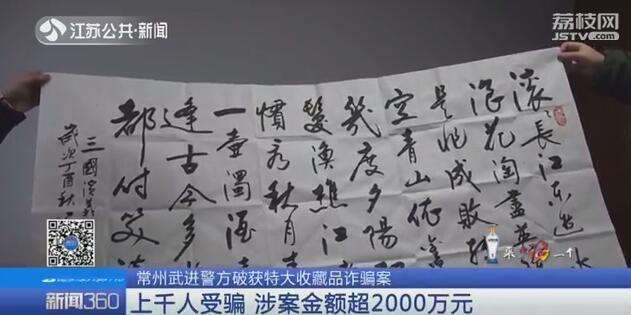 江苏公共·新闻
荔枝网
JSTV.com
滚滚長江东逝水
浪花淘盡英
是非成敗转
空青山依舊
幾度夕陽
髮漁樵江
慣看秋月
一壶濁酒
逢古今多
都付笑
三國演義
歲次丁酉秋
常州武进警方破获特大收藏品诈骗案
新闻360
上千人受骗 涉案金额超2000万元